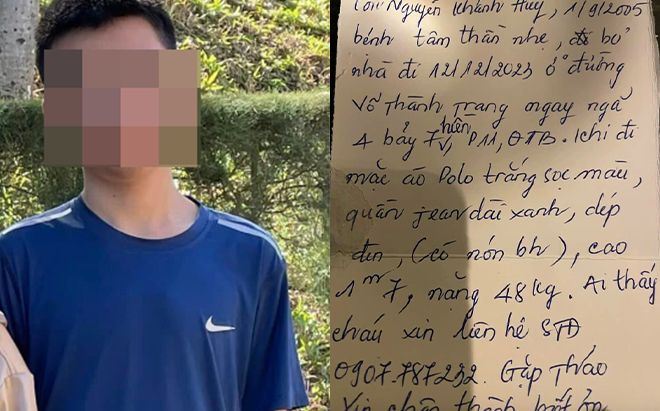 Con Nguyễn Khánh Huy, 1/9/2005
bệnh tâm thần nhẹ, đã bỏ
nhà đi 12/12/2023 ở đường
Võ Thành Trang ngay ngã
4 bảy hiền, P11, QTB. Khi đi
mặc áo Polo trắng sọc màu,
quần jean dài xanh, dép
đen, (có nón bh), cao
1m7, nặng 48kg. Ai thấy
cháu xin liên hệ SĐT
0907.787232. Gặp Thảo
Xin chân thành